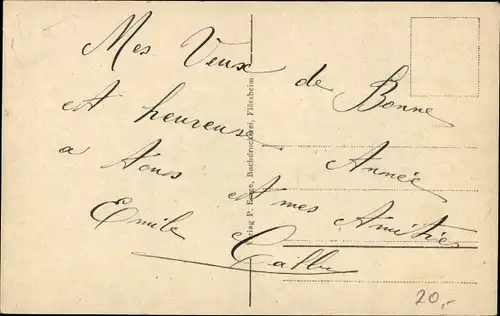 Mes Veux de Bonne
et heureuse Année
a tous A mes Amitiés
Emile
Verlag P. Buchdruckerei, Flörsheim
20,-